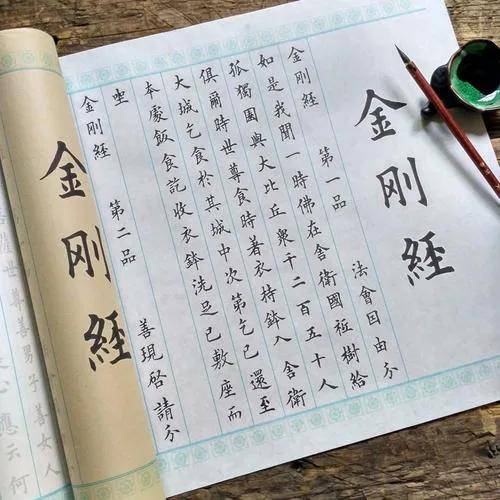 金刚經
金剛經 第一品 法會因由分
如是我聞一時佛在舍衛國祗樹給
孤獨園與大比丘衆千二百五十人
俱爾時世尊食時著衣持鉢入舍衛
大城乞食於其城中次第乞已還至
本處飯食訖收衣鉢洗足已敷座而
坐
金剛經 第二品 善現啓請分
金刚經
世尊善男子善女人
心應云何